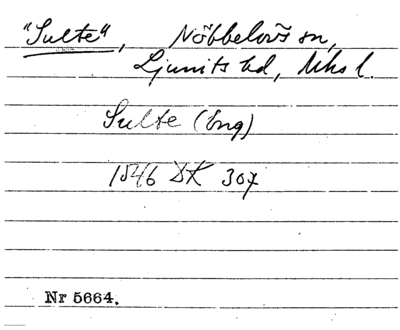 "Sulte", Nöbbelövs sn,
Ljunits hd, Mhs l.
Sulte (Eng)
1546 DK 307
Nr 5664.